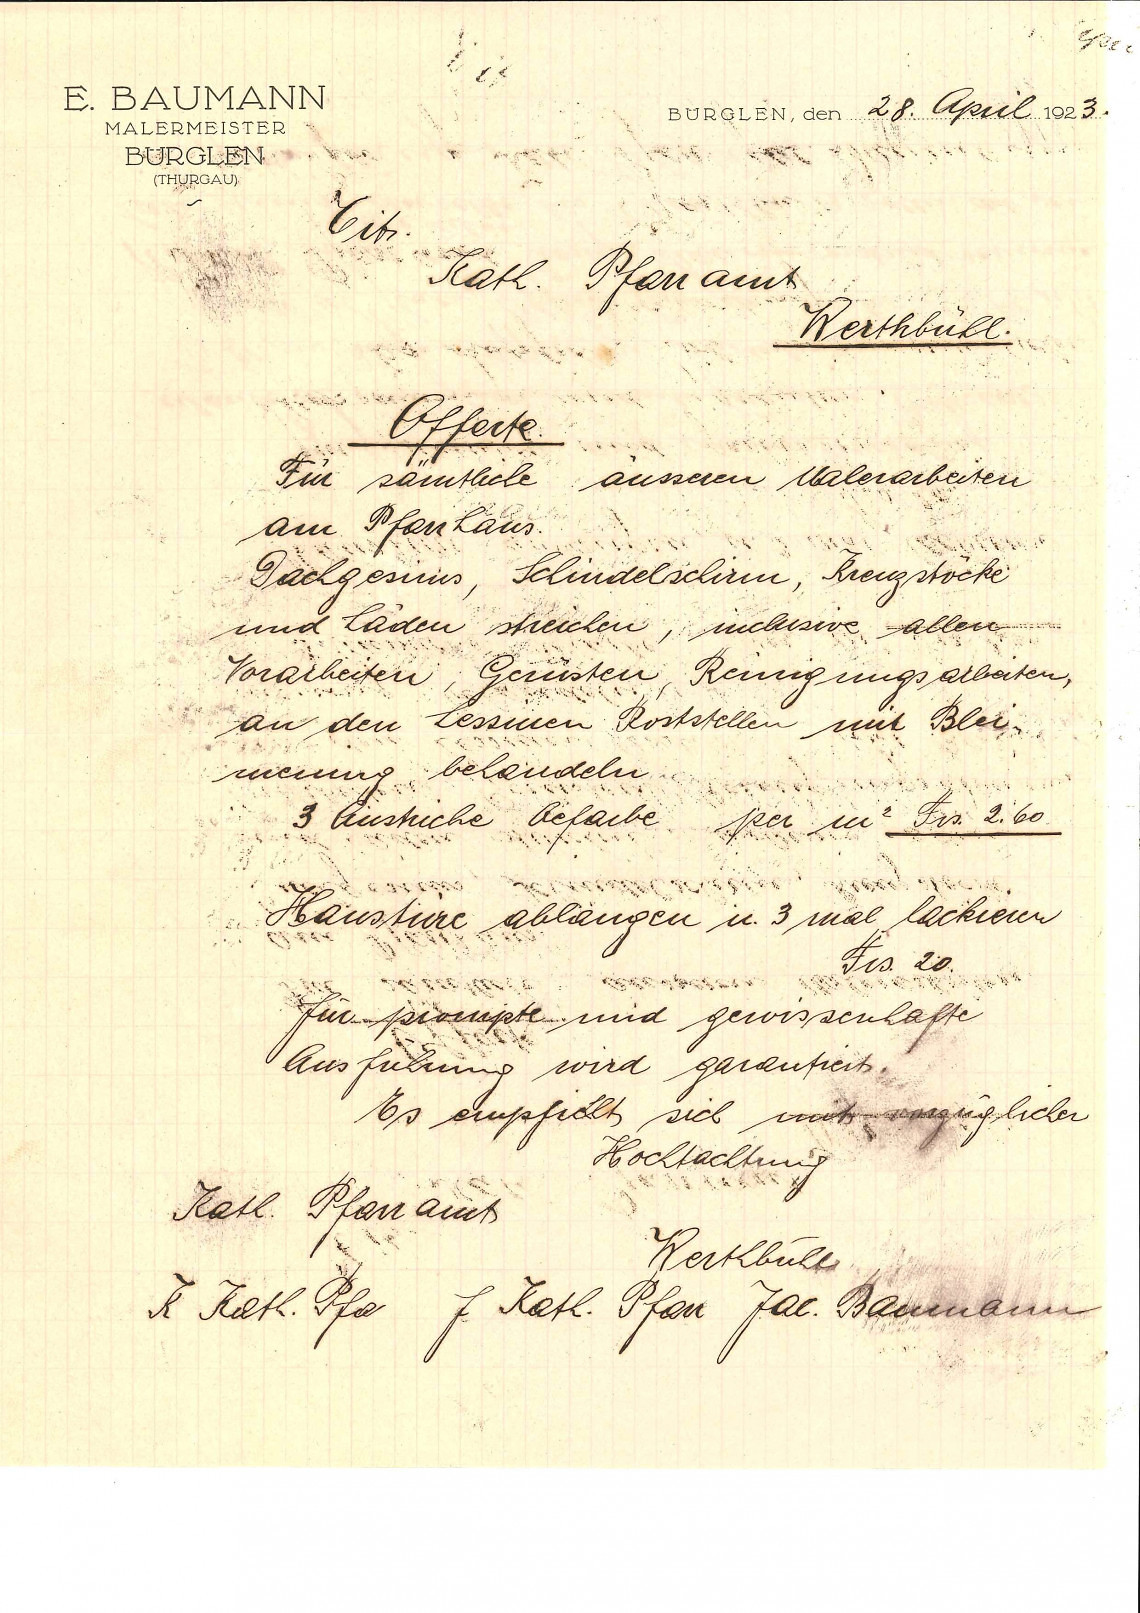 E. BAUMANN
MALERMEISTER
BÜRGLEN
(THURGAU)
BÜRGLEN, den 28. April 1923.
Tit.
Kath. Pfarramt
Werthbühl.
Offerte.
Für sämtliche äusseren Malerarbeiten
am Pfarrhaus.
Dachgesims, Schindelschirm, Kreuzstöcke
und Läden streichen, inclusive allen
Vorarbeiten, Gerüsten, Reinigungsarbeiten,
an den Lessinen Roststellen mit Blei-
menning behandeln
3 Anstriche Oelfarbe per m² Frs. 2.60
Haustüre ablaugen u. 3 mal lackieren
Frs. 20.
Für prompte und gewissenhafte
Ausführung wird garantiert.
Es empfiehlt sich mit vorzüglicher
Hochtachtung
Kath. Pfarramt
Werthbühl
K Kath. Pfa J Kath. Pfarr Jac. Baumann